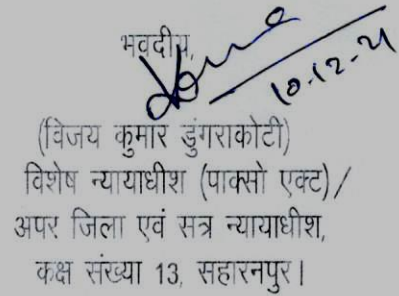 भवदीय,
10-12-21
(विजय कुमार डुंगराकोटी)
विशेष न्यायाधीश (पाक्सो एक्ट)/
अपर जिला एवं सत्र न्यायाधीश,
कक्ष संख्या 13, सहारनपुर।